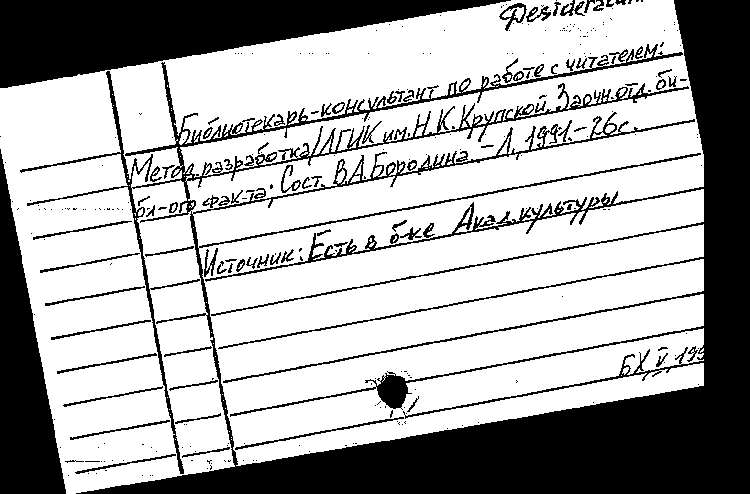 Desiderata
Библиотекарь-консультант по работе с читателем:
Метод.разработка/ЛГИК им.Н.К.Крупской. Заочн.отд. би-
бл-ого фак-та; Сост. В.А.Бородина. - Л., 1991.-26с.
Источник: Есть в б-ке Акад.культуры
БХ, V, 199